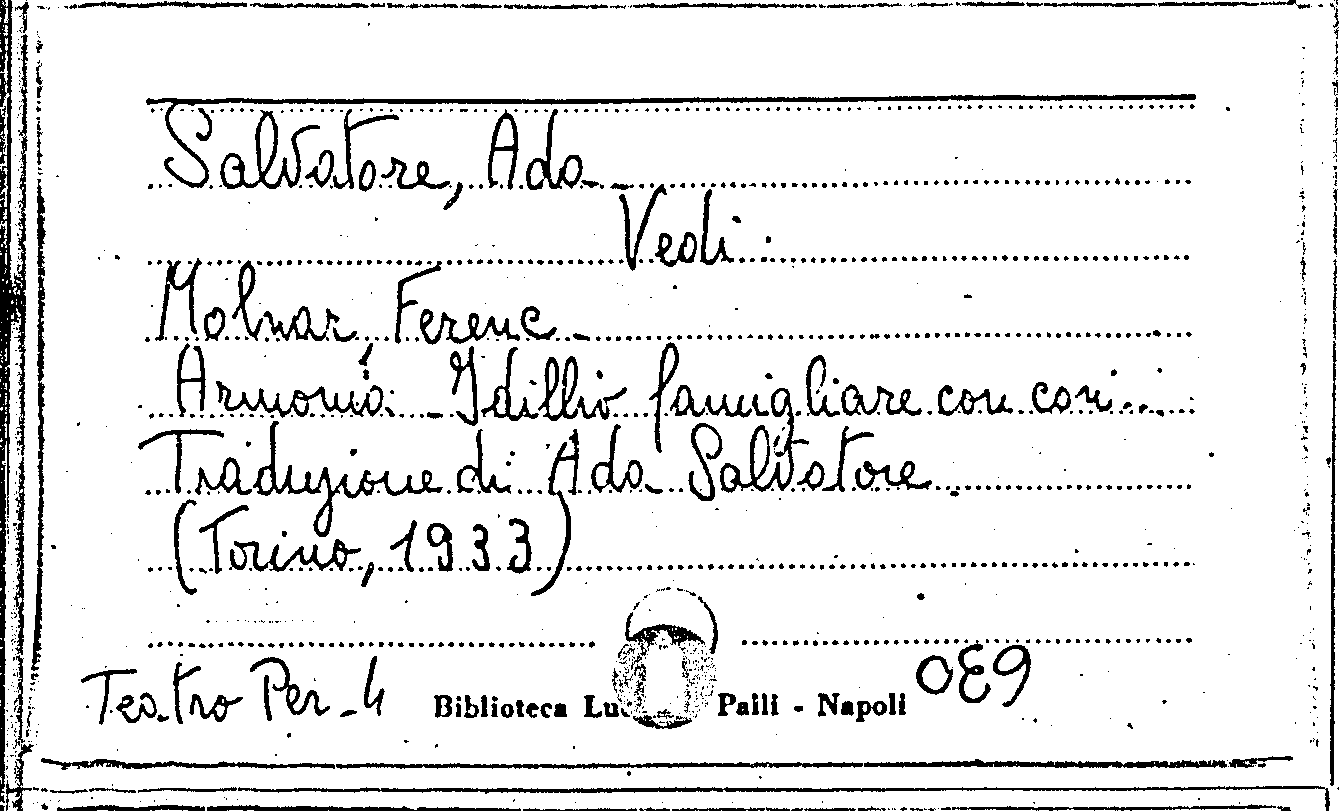 Salvatore, Ada
Vedi:
Molnar, Ferenc
Armonia. Idillio famigliare con cori...
Traduzione di Ada Salvatore
(Torino, 1933)
Teatro Per. 4 Biblioteca Palli - Napoli